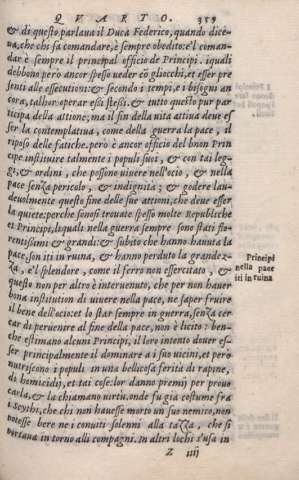 QVARTO. 359
& di questo, parlaua il Duca Federico, quando dice-
ua, che chi sa comandare, è sempre obedito: e'l coman-
dar è sempre il principal officio de Principi. iquali
debbono però ancor spesso ueder co gliocchi, et esser pre
senti alle essecutioni: & secondo i tempi, e i bisogni an
cora, talhor operar essi stessi. & tutto questo pur par
ticipa della attione; ma il fin della uita attiua deue es
ser la contemplatiua, come della guerra la pace, il
riposo delle fatiche. però è ancor officio del buon Prin
cipe instituire talmente i populi suoi, & con tai leg-
gi, & ordini, che possono uiuere nell'ocio, & nella
pace senza pericolo, & indignità; & godere lau-
deuolmente questo fine delle sue attioni, che deue esser
la quiete: perche sonosi trouate spesso molte Republiche
et Principi, liquali nella guerra sempre sono stati flo-
rentissimi & grandi: & subito che hanno hauuta la
pace, son iti in ruina, & hanno perduto la grandez-
za, e'l splendore, come il ferro non essercitato, &
questo non per altro è interuenuto, che per non hauer
bona institution di uiuere nella pace, ne saper fruire
il bene dell'ocio: et lo star sempre in guerra, senza cer
car di peruenire al fine della pace, non è licito: ben-
che estimano alcuni Principi, il loro intento douer es-
ser principalmente il dominare a i suoi uicini, et però
nutriscono i populi in una bellicosa ferità di rapine,
di homicidij, et tai cose: lor danno premij per prouo
carla, & la chiamano uirtù. onde fu già costume fra
i Scythi, che chi non hauesse morto un suo nemico, non
potesse bere ne i conuiti solenni alla tazza, che si
portaua in torno alli compagni. In altri lochi s'usa in
Z iiij
Principi
nella pace
iti in ruina